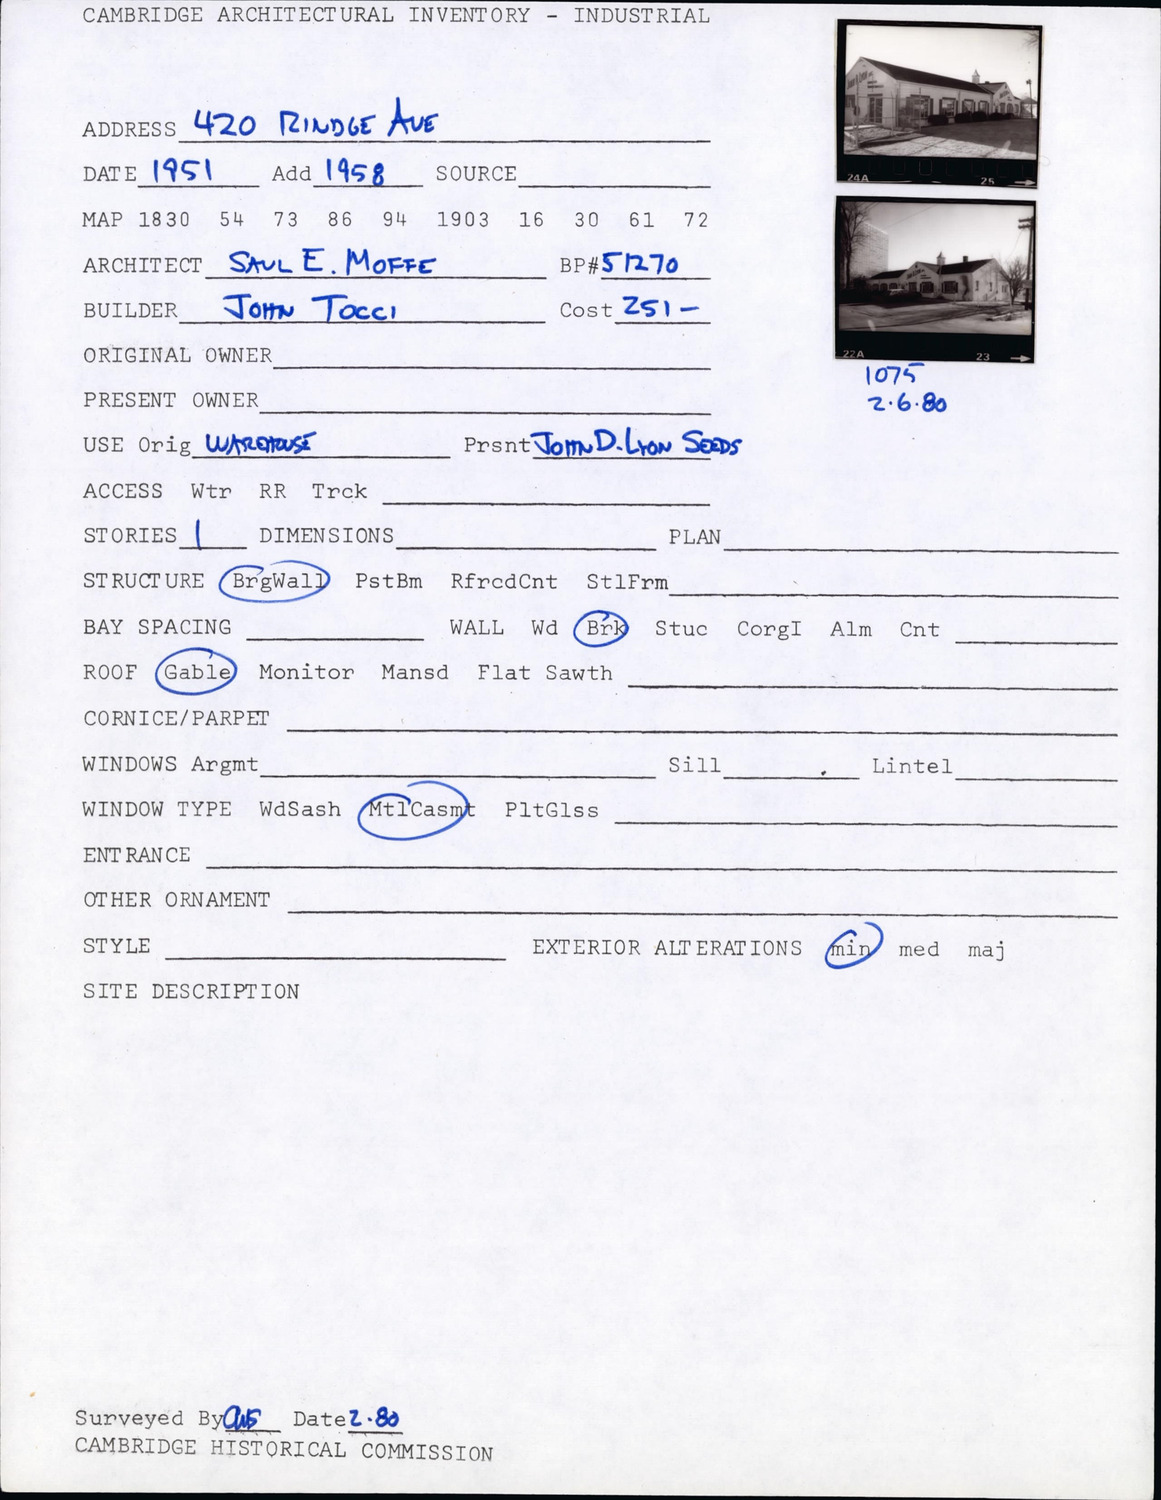 CAMBRIDGE ARCHITECTURAL INVENTORY - INDUSTRIAL
ADDRESS 420 RINDGE AVE
DATE 1951 Add 1958 SOURCE
MAP 1830 54 73 86 94 1903 16 30 61 72
ARCHITECT SAUL E. MOFFE BP# 51270
BUILDER JOHN TOCCI Cost 251-
ORIGINAL OWNER
PRESENT OWNER
USE Orig WAREHOUSE Prsnt JOHN D. LYON SEEDS
ACCESS Wtr RR Trck
STORIES 1 DIMENSIONS PLAN
STRUCTURE BrgWall PstBm RfrcdCnt StlFrm
BAY SPACING WALL Wd Brk Stuc CorgI Alm Cnt
ROOF Gable Monitor Mansd Flat Sawth
CORNICE/PARPET
WINDOWS Argmt Sill Lintel
WINDOW TYPE WdSash MtlCasmt PltGlss
ENTRANCE
OTHER ORNAMENT
STYLE EXTERIOR ALTERATIONS min med maj
SITE DESCRIPTION
24A 25
22A 23
1075
2.6.80
Surveyed By Date 2.80
CAMBRIDGE HISTORICAL COMMISSION